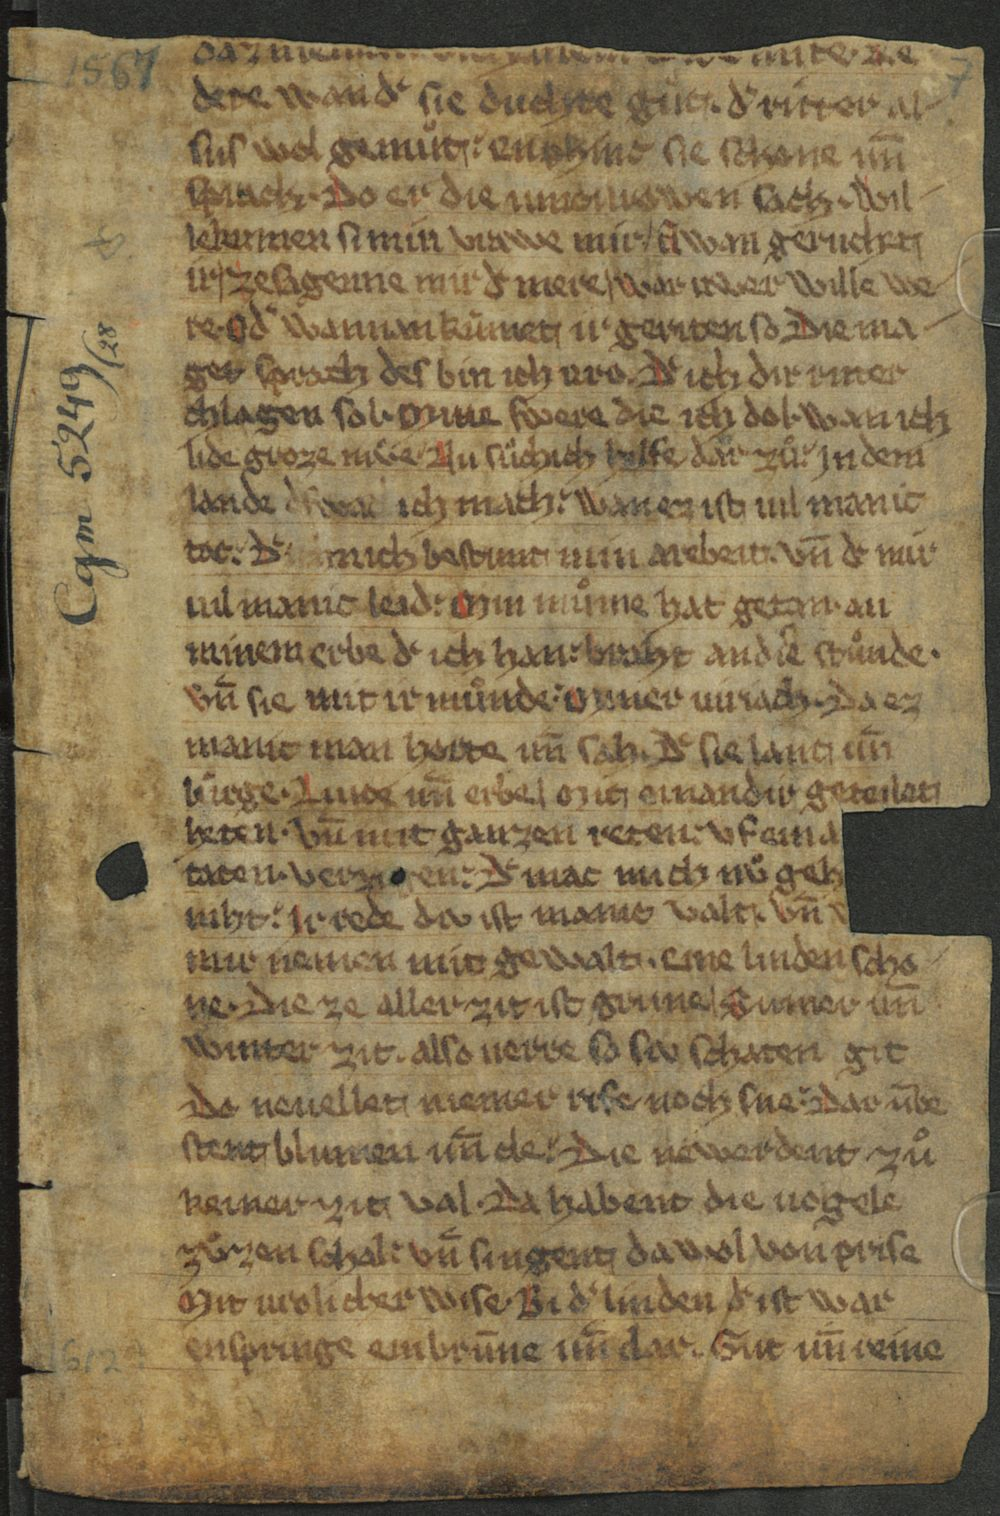 1567
7
dete wand sie duchte gůt. dˢ ritter al
sus wol gemůt: enphinc sie schone uñ
sprach. Do er die iuncurowen sach. Wil
lekumen si min vrowe mir/ Swan geruchet
ir/ zesagenne mir dˢ mere/ war iwer wille we
re. Odˢ wannan kůmet ir geriten so Die ma
get sprach des bin ich vro. Dˢ ich dir ritter
chlagen sol. Mine swere die ich dol. wan ich
lide groze můe Nu sůchich helfe dar zů: In dem
lande ich mach: wan ez ist uil manic
tac: Dˢ mich bestunt min arebeit. vñ dˢ mir
uil manic leid: Min můme hat getan. an
minem erbe dˢ ich han: braht an die stůnde.
vñ sie mit ir můnde: Mmer uiriach. Da ez
manic man horte uñ sach. Dˢ sie lant uñ
bůrge. Liute uñ erbe/ Mit einandir geteilet
heten. vñ mit ganzen reten: vf ein a
taten. verzigen: Dˢ mac mich nů geh
niht: Ir rede div ist manic valt. vñ w
mir nemen mit gewalt. eine linden scho
ne. Die ze aller zit ist grune/ Sumer uñ
winter zit. also uerre so siv schaten git
Do neuellet niemer rife noch sne: Dar ůbe
stent blumen uñ cle: Die newerdent zů
keiner zit val. Da habent die uogele
zůzen schal: vñ singent da wol von prise
Mit urolicher wise. Bi dˢ linden dˢ ist war
enspringe ein brůnne uñ clar. Gůt uñ reine
Cgm 5249/28
1612